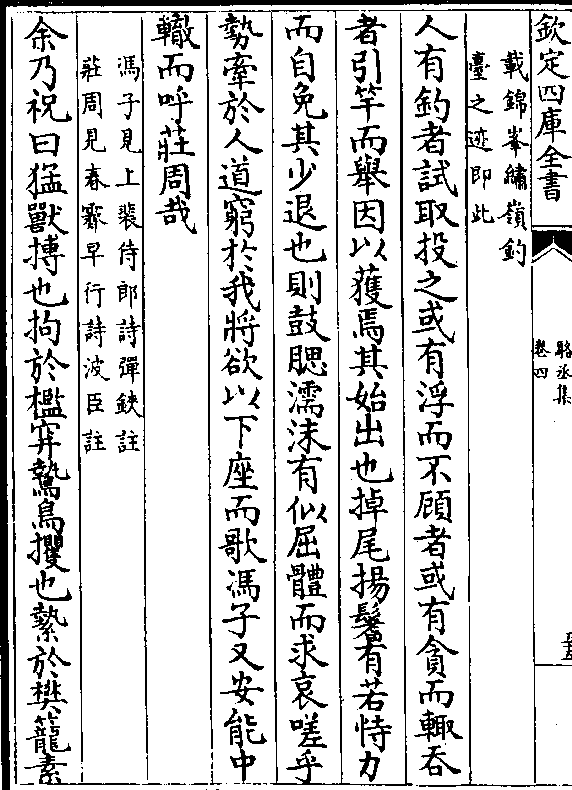 欽定四庫全書
駱丞集
卷四
載錦峯繡嶺釣
臺之迹即此
人有釣者試取投之或有浮而不顧者或有貪而輙吞
者引竿而舉因以獲焉其始出也掉尾揚鬐有若恃力
而自免其少退也則鼓腮濡沫有似屈體而求哀嗟乎
勢牽於人道窮於我將欲以下座而歌馮子又安能中
轍而呼莊周哉
馮子見上裴侍郎詩彈鋏註
莊周見春霽早行詩波臣註
余乃祝曰猛獸搏也拘於檻穽鷙鳥攫也縶於樊籠素